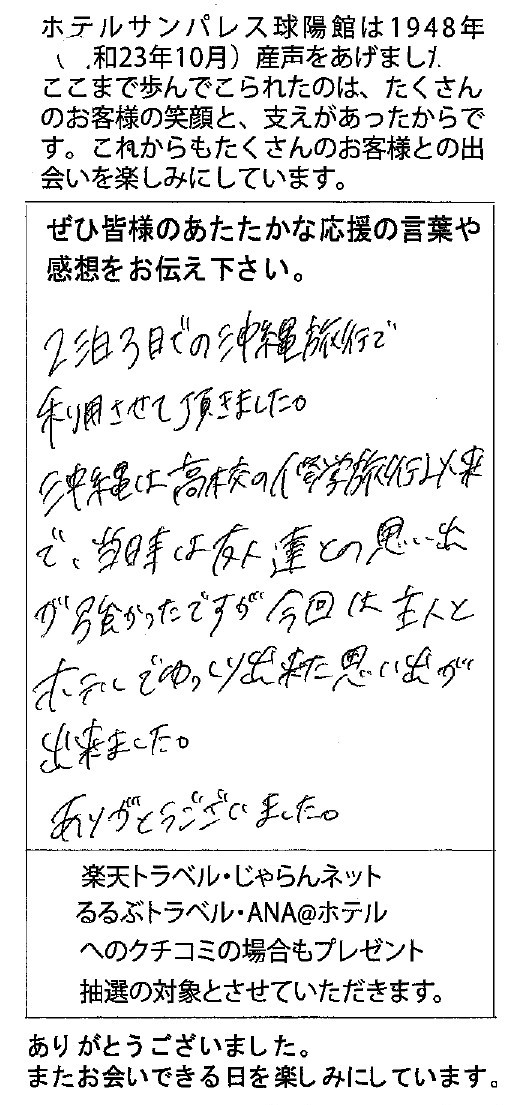 ホテルサンパレス球陽館は1948年
和23年10月）産声をあげまし
ここまで歩んでこられたのは、たくさん
のお客様の笑顔と、支えがあったからで
す。これからもたくさんのお客様との出
会いを楽しみにしています。
ぜひ皆様のあたたかな応援の言葉や
感想をお伝え下さい。
2泊3日での沖縄旅行で
利用させて頂きました。
沖縄は高校の修学旅行以来
で、当時は友人達との思い出
が強かったですが今回は主人と
ホテルでゆっくり出来た思い出が
出来ました。
ありがとうございました。
楽天トラベル・じゃらんネット
るるぶトラベル・ANA@ホテル
へのクチコミの場合もプレゼント
抽選の対象とさせていただきます。
ありがとうございました。
またお会いできる日を楽しみにしています。